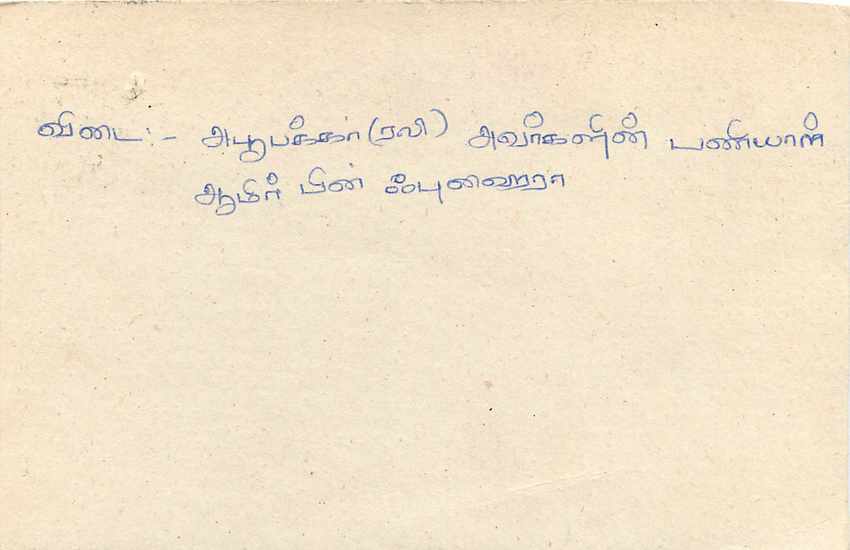 விடை:- அபூபக்கர்(ரலி) அவர்களின் பணியாள்
ஆமிர் பின் ஃபுஹைரா